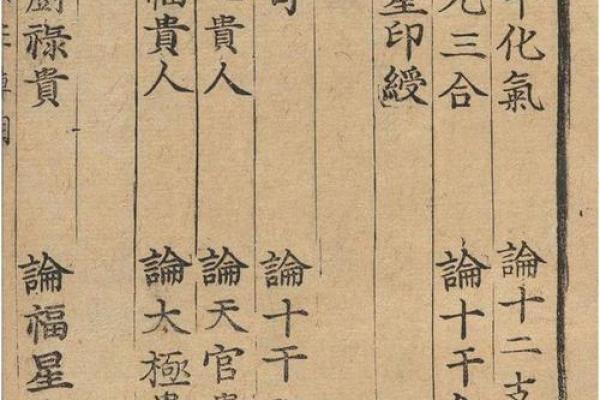 化氣 論十二支
三合 論十干
星印綬
論十干
貴人 論天官
福貴人 論太極
廚祿貴 論福星